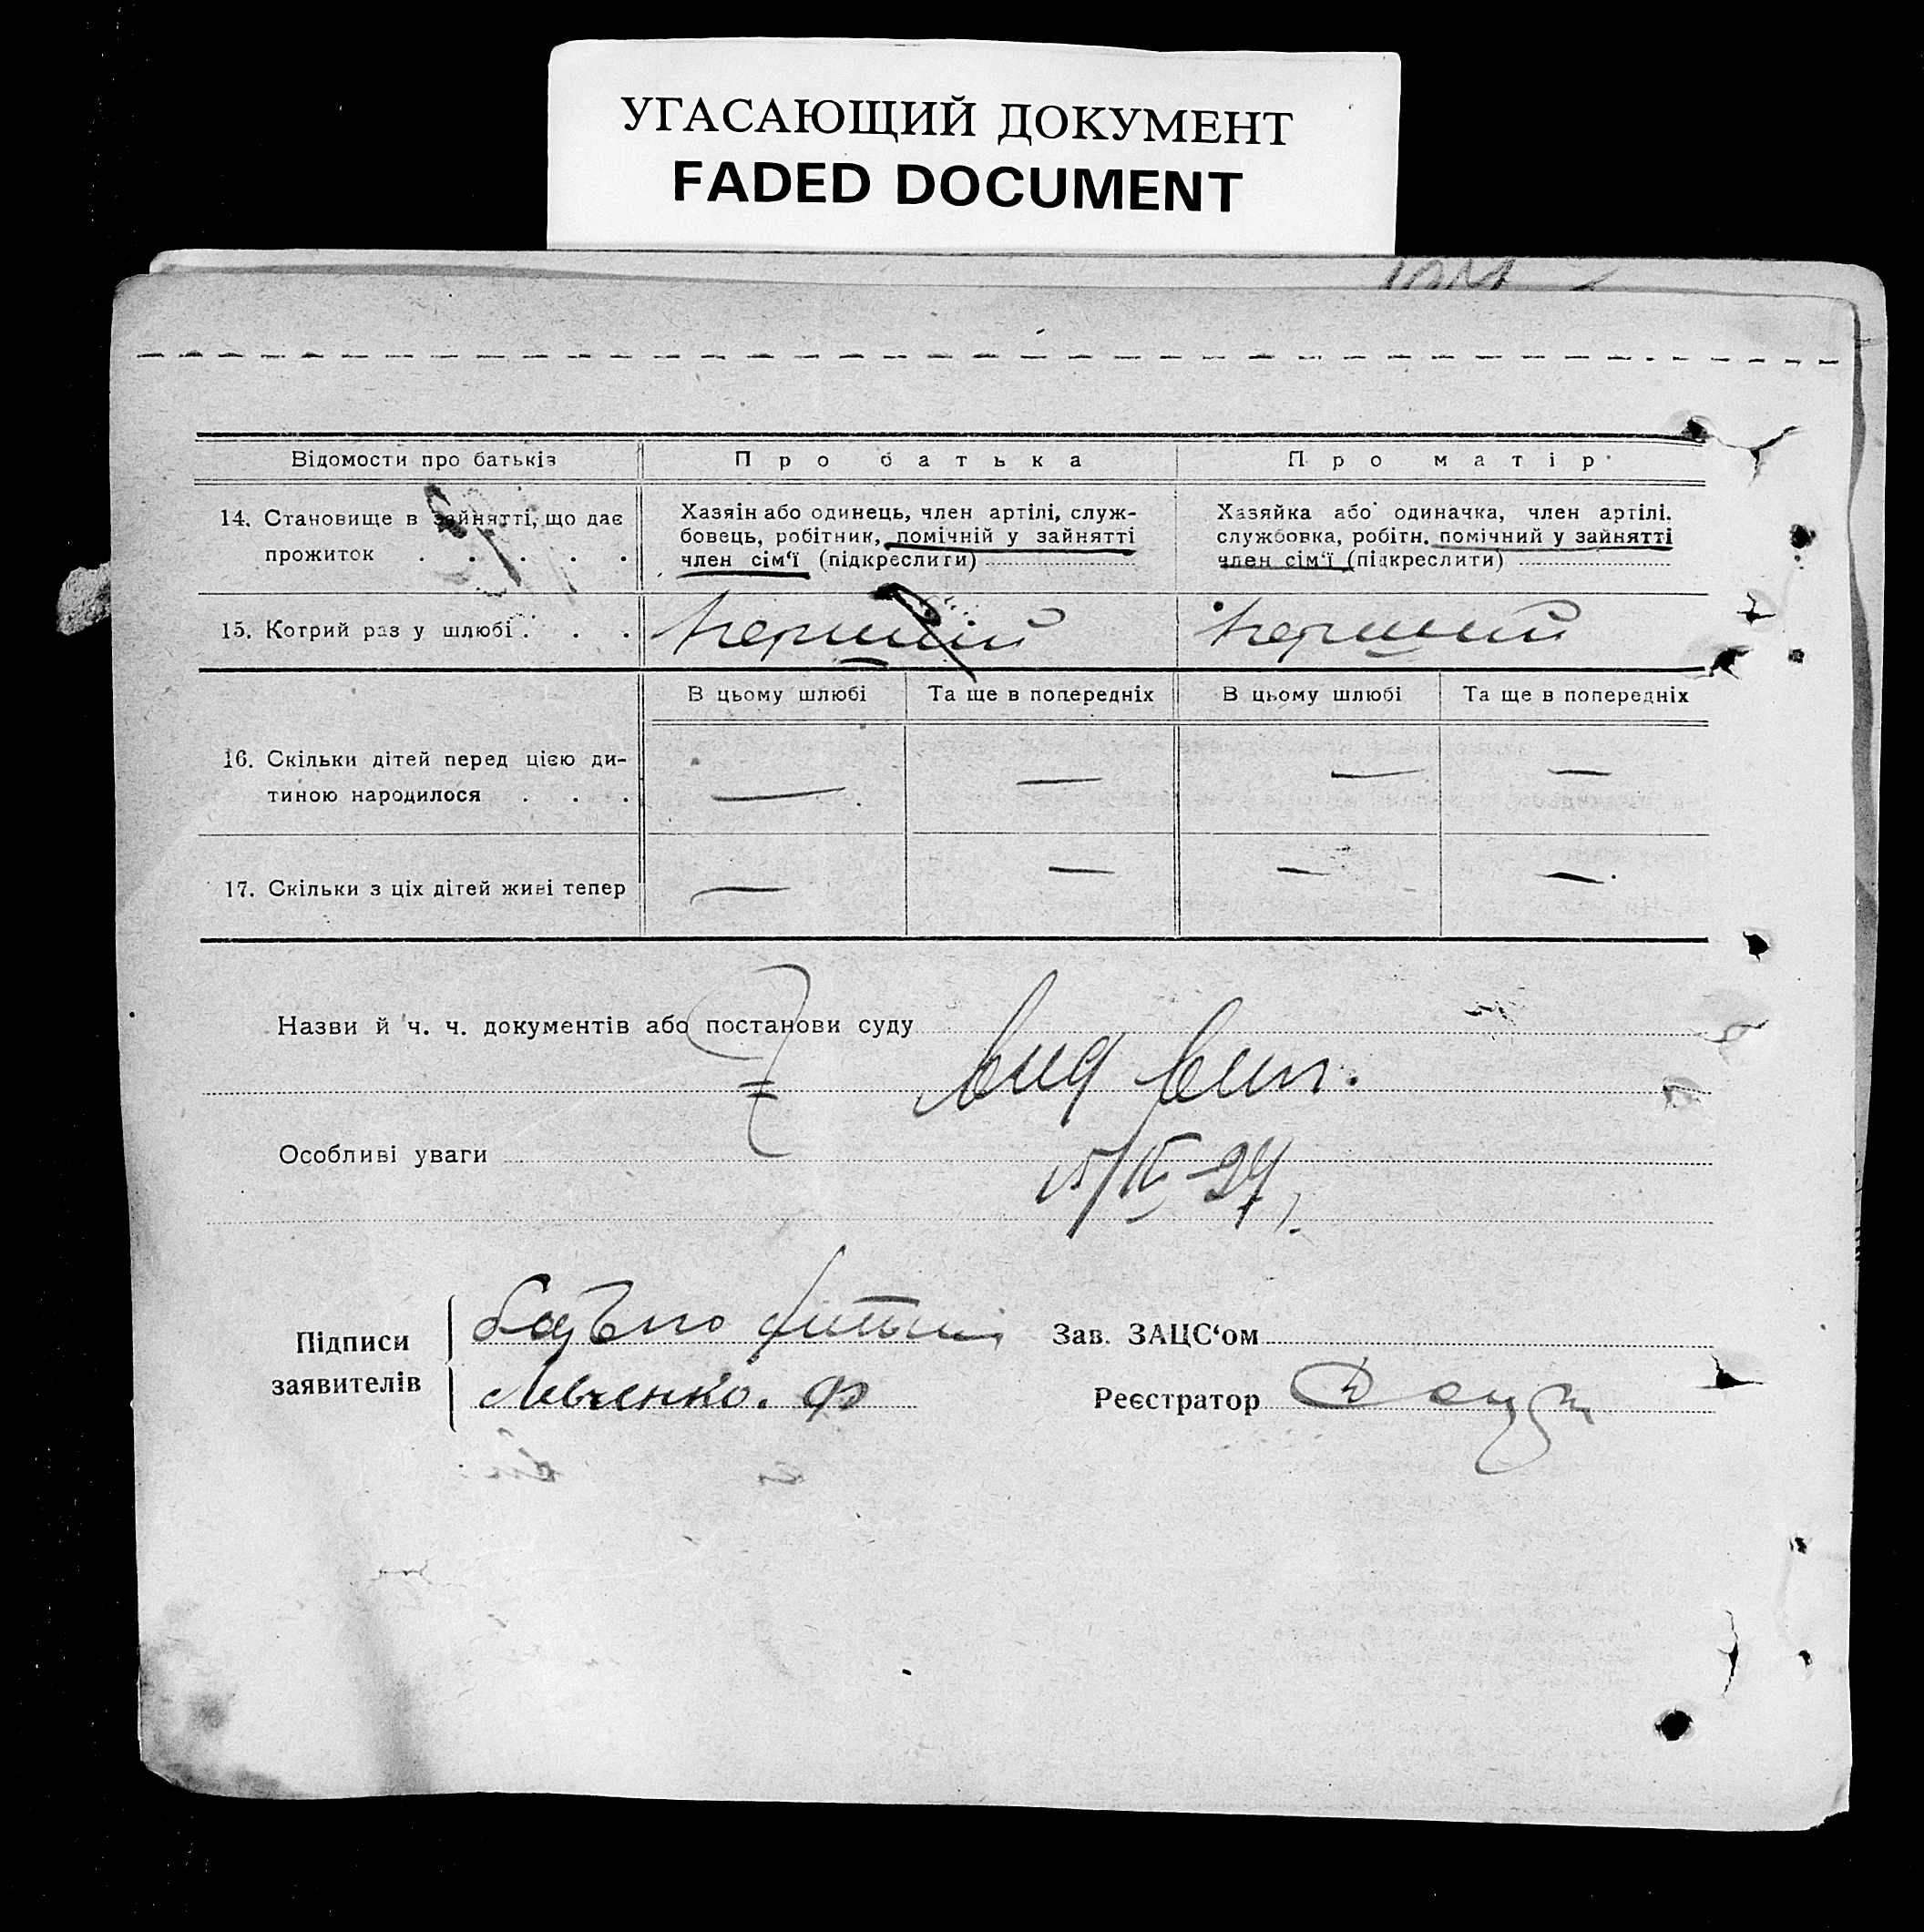 УГАСАЮЩИЙ ДОКУМЕНТ
FADED DOCUMENT
Відомости про батьків
Про батька
Про матір
14. Становище в зайнятті, що дає
прожиток . . . . .
Хазяїн або одинець, член артілі, служ-
бовець, робітник, помічній у зайнятті
член сім'ї (підкреслити)
Хазяйка або одиначка, член артілі.
службовка, робітн. помічний у зайнятті
член сім'ї (підкреслити)
15. Котрий раз у шлюбі . . .
перший
перший
В цьому шлюбі
Та ще в попередніх
В цьому шлюбі
Та ще в попередніх
16. Скільки дітей перед цією ди-
тиною народилося . . .
— — — —
17. Скільки з ціх дітей живі тепер
— — — —
Назви й ч. ч. документів або постанови суду
Особливі уваги
Підписи
заявителів
Левченко. Ф
Зав. ЗАЦС‘ом
Реєстратор